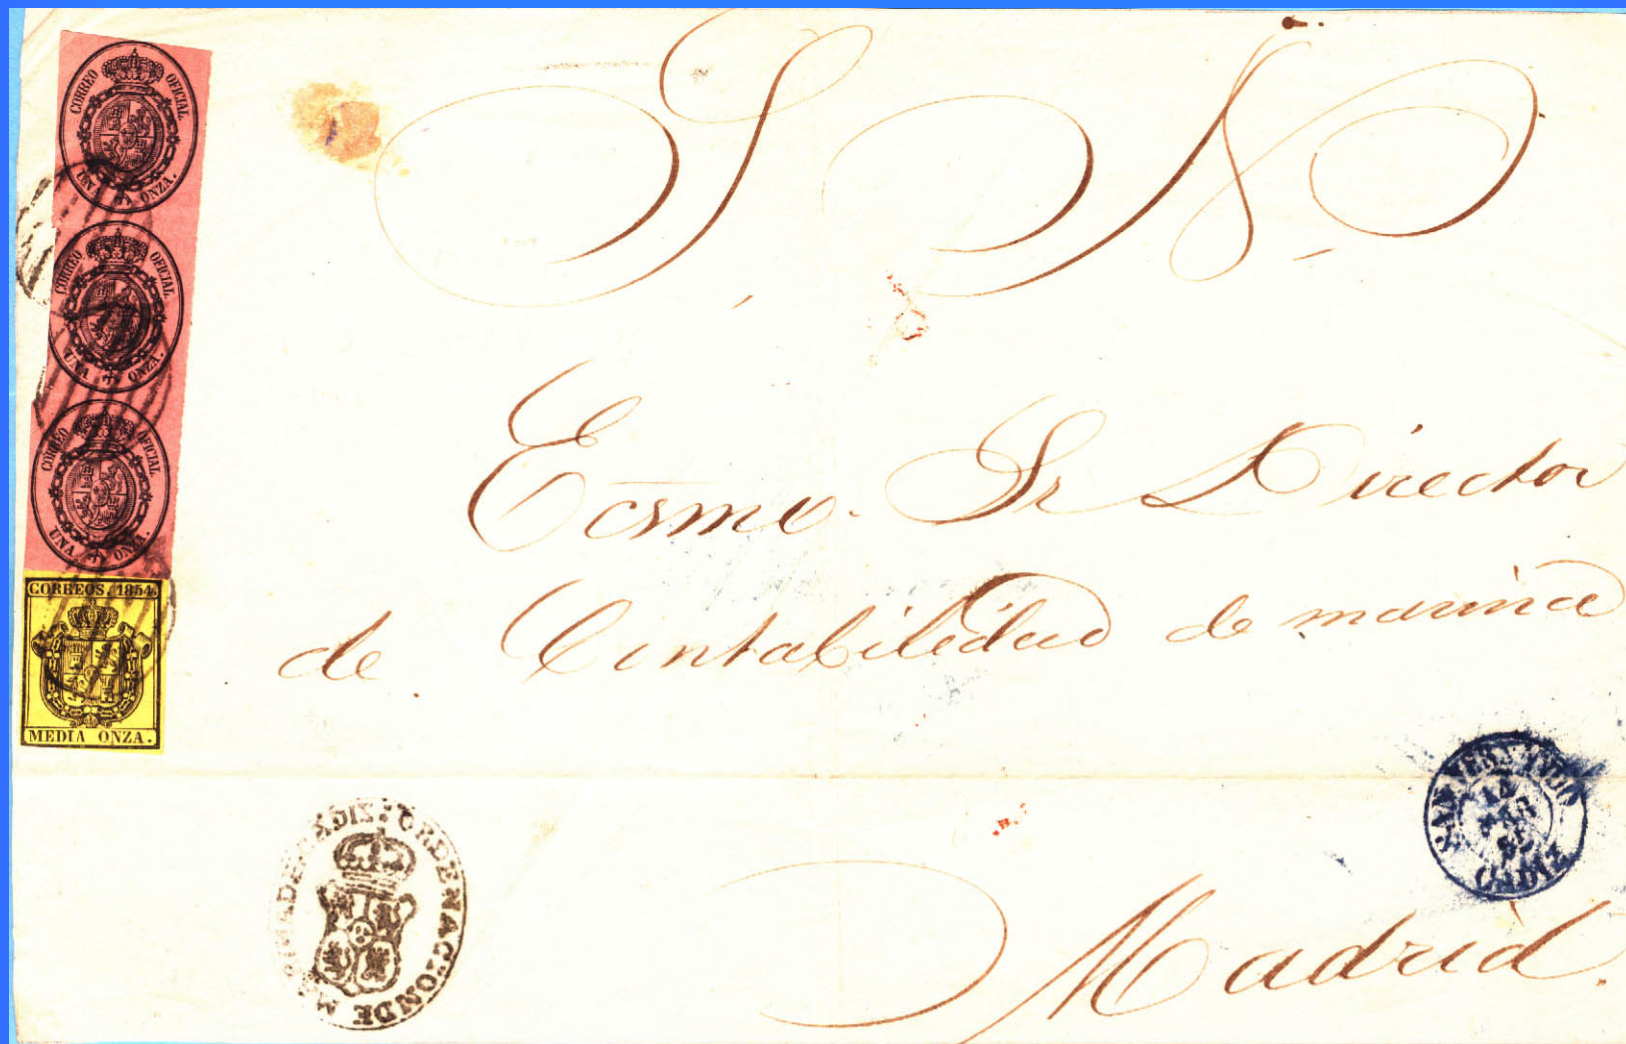 CORREO OFICIAL
UNA ONZA.
CORREO OFICIAL
UNA ONZA.
CORREO OFICIAL
UNA ONZA.
CORREOS. 1854.
MEDIA ONZA.
S. N.
Ecsmo. Sr Director
de Contabilidad de marina
SAN FERNANDO
14
MAR
55
CADIZ
ORDENACION DE MARINA DE CADIZ
Madrid.